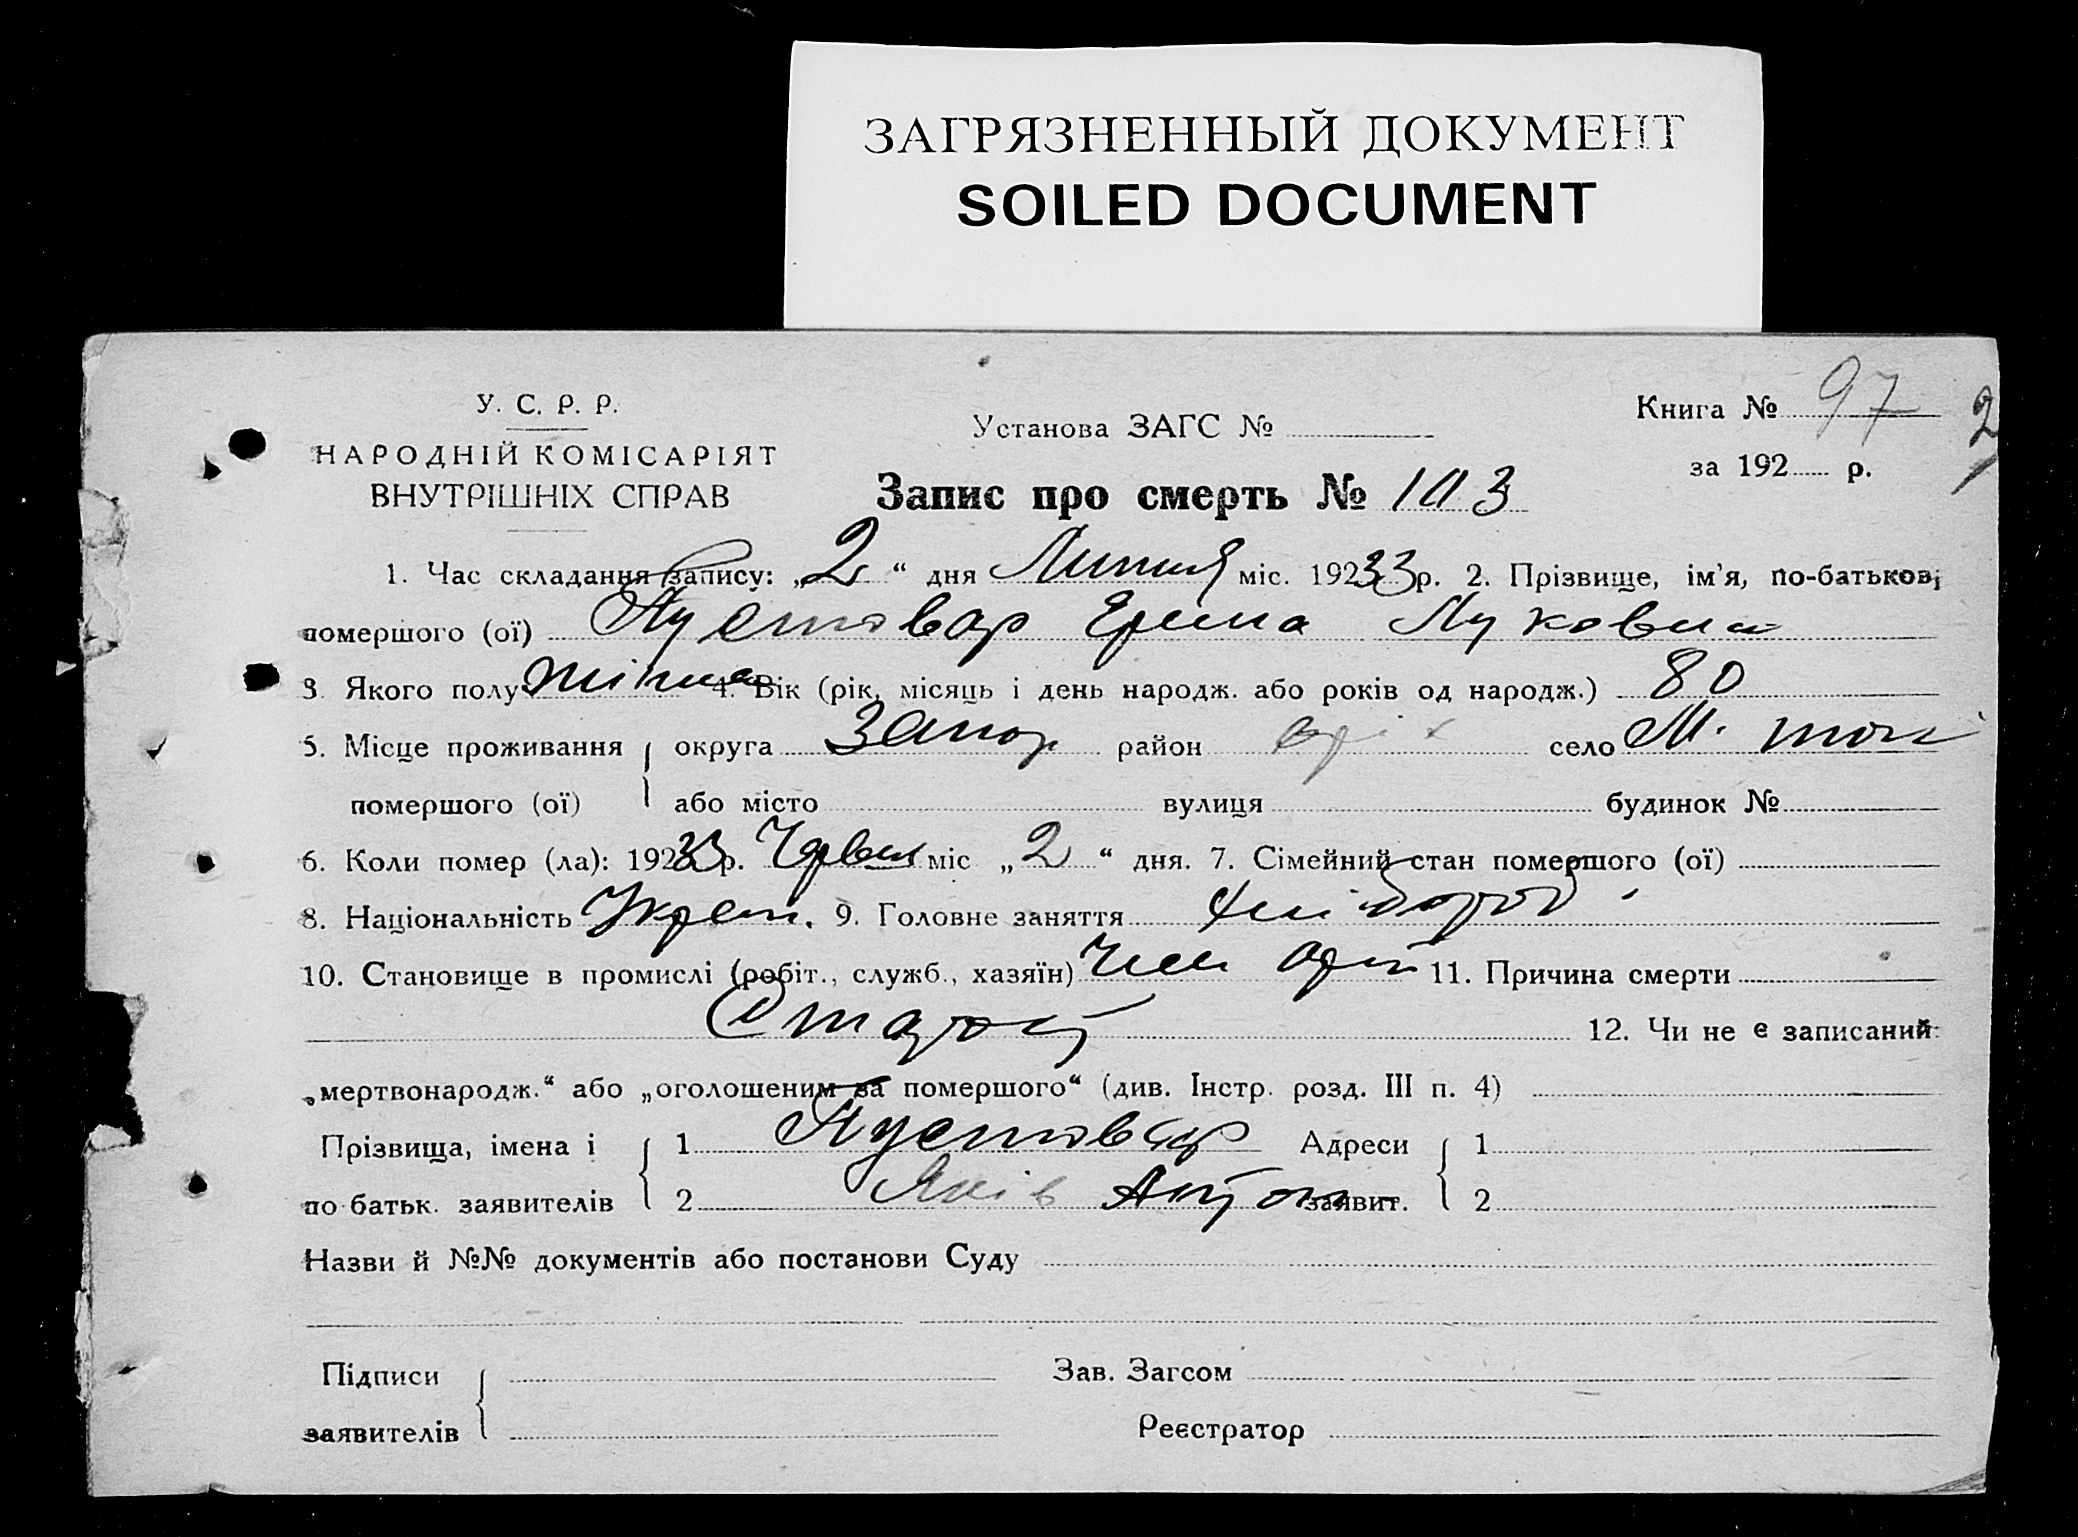 ЗАГРЯЗНЕННЫЙ ДОКУМЕНТ
SOILED DOCUMENT
У. С. Р. Р.
НАРОДНІЙ КОМІСАРІЯТ
ВНУТРІШНІХ СПРАВ
Установа ЗАГС №
Книга № 97
2
за 192 р.
Запис про смерть № 103
1. Час складання запису: „2“ дня Липня міс. 19233 р. 2. Прізвище, ім'я, по-батькові
помершого (ої) Пустовар Мукович
3 Якого полу жіноч 4. Вік (рік, місяць і день народж. або років од народж.) 80
5. Місце проживання округа Запор район Оріх село М. ток
помершого (ої) або місто вулиця будинок №
6. Коли помер (ла): 19233 р. Червня міс „2“ дня. 7. Сімейний стан помершого (ої)
8. Національність Украт. 9. Головне заняття хлібороб
10. Становище в промислі (робіт., служб., хазяїн) Член 11. Причина смерти
12. Чи не є записаний:
„мертвонародж.“ або „оголошеним за помершого“ (див. Інстр. розд. III п. 4)
Прізвища, імена і 1 Пустовар Адреси 1
по батьк. заявителів 2 Яків Антон заявит. 2
Назви й №№ документів або постанови Суду
Підписи Зав. Загсом
заявителів Реєстратор